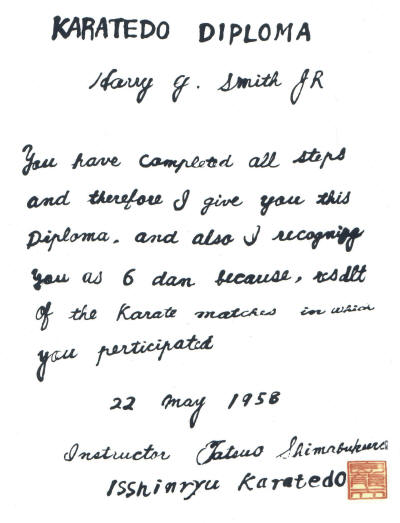 KARATEDO DIPLOMA
Harry G. Smith JR
You have completed all steps
and therefore I give you this
Diploma. and also I recognize
you as 6 dan because, rsdlt
of the Karate matches in which
you perticipated
22 may 1958
Instructor Tatsuo Shimabukuro
Isshinryu Karatedo